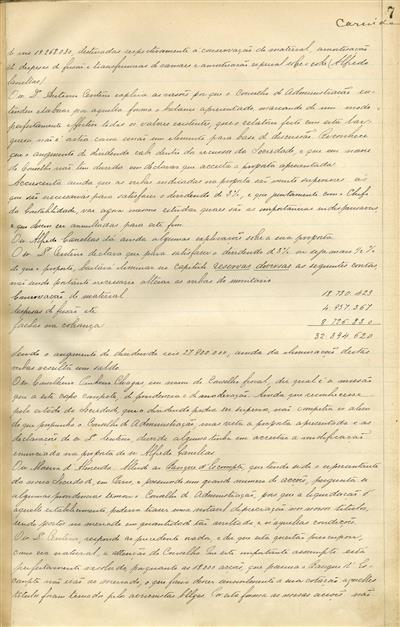 7
Carris de
de reis 18.268.030, destinadas respectivamente á conservação de material, amortisação
de despezas de fusão e transformação de carros e amortisação especial sobre este (Alfredo
Canellas)
O sr. Dr. Centeno explica as razões por que o Conselho de Administração en-
tendeu elaborar por aquella forma o balanço apresentado, marcando de um modo
perfeitamente effectivo todos os valores existentes, que o relatorio feito com esta
quem não é outra coisa senão um elemento para base de discussão. Reconhece
que o augmento de dividendo cabe dentro dos recursos da Sociedade, e que em nome
do Conselho não tem duvida em declarar que acceita a proposta apresentada.
Accrescenta ainda que as verbas indicadas na proposta são muito superiores ás
que são necessarias para satisfazer o dividendo de 3%, e que juntamente com o Chefe
da Contabilidade, vae agora mesmo estudar quaes são as importancias indispensaveis
e que devem ser annulladas para este fim.
O sr. Alfredo Canellas dá ainda algumas explicações sobre a sua proposta.
O sr. Dr. Centeno declara que para satisfazer o dividendo de 3% ou seja mais ½ %
do que o proposto, bastará eliminar no capitulo reservas diversas as seguintes contas,
não sendo portanto necessario alterar as verbas do inventario
Conservação de material 18.730.423
Despezas de fusão etc 4.937.367
Fachas na cobrança 8.726.830
32.394.620
Sendo o augmento de dividendo reis 27.900.000, ainda da eliminação destas
verbas resulta um saldo.
O sr. Conselheiro Pinheiro Chagas em nome do Conselho fiscal, diz qual é a missão
que a este corpo compete, de prudencia e de moderação. Ainda que reconhecesse
pelo estado da Sociedade, que o dividendo podia ser superior, não competia ir alem
do que propunha o Conselho de Administração, mas visto a proposta apresentada e as
declarações do sr. Dr. Centeno, duvida alguma tinha em acceitar a modificação
enunciada na proposta do sr. Alfredo Canellas
O sr. Moura d'Almeida allude ao Banque d'Escompte, que tendo sido o representante
da nossa Sociedade, em Paris, e possuindo um grande numero de acções, pergunta se
algumas providencias tomou o Conselho de Administração, por que a liquidação d'
aquelle estabelecimento, poderia trazer uma notavel depreciação nos nossos titulos,
sendo postos no mercado em quantidade tão avultada e n'aquellas condições.
O sr. Dr. Centeno, responde ao precedente orador, e diz que esta questão preoccupou,
como era natural, a attenção do Conselho. Que este importante assumpto está
perfeitamente resolvido, porquanto as 18.000 acções, que possuia o Banque d'Es-
compte não irão ao mercado, o que faria descer sensivelmente a sua cotação, aquelles
titulos foram tomados pelos accionistas belgas. Por esta forma as nossas acções não